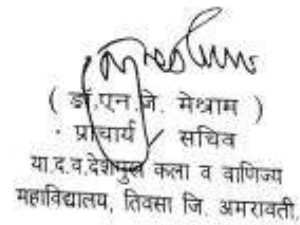 ( डॉ.एन.जे. मेश्राम )
प्राचार्य / सचिव
या.द.व.देशमुख कला व वाणिज्य
महाविद्यालय, तिवसा जि. अमरावती.